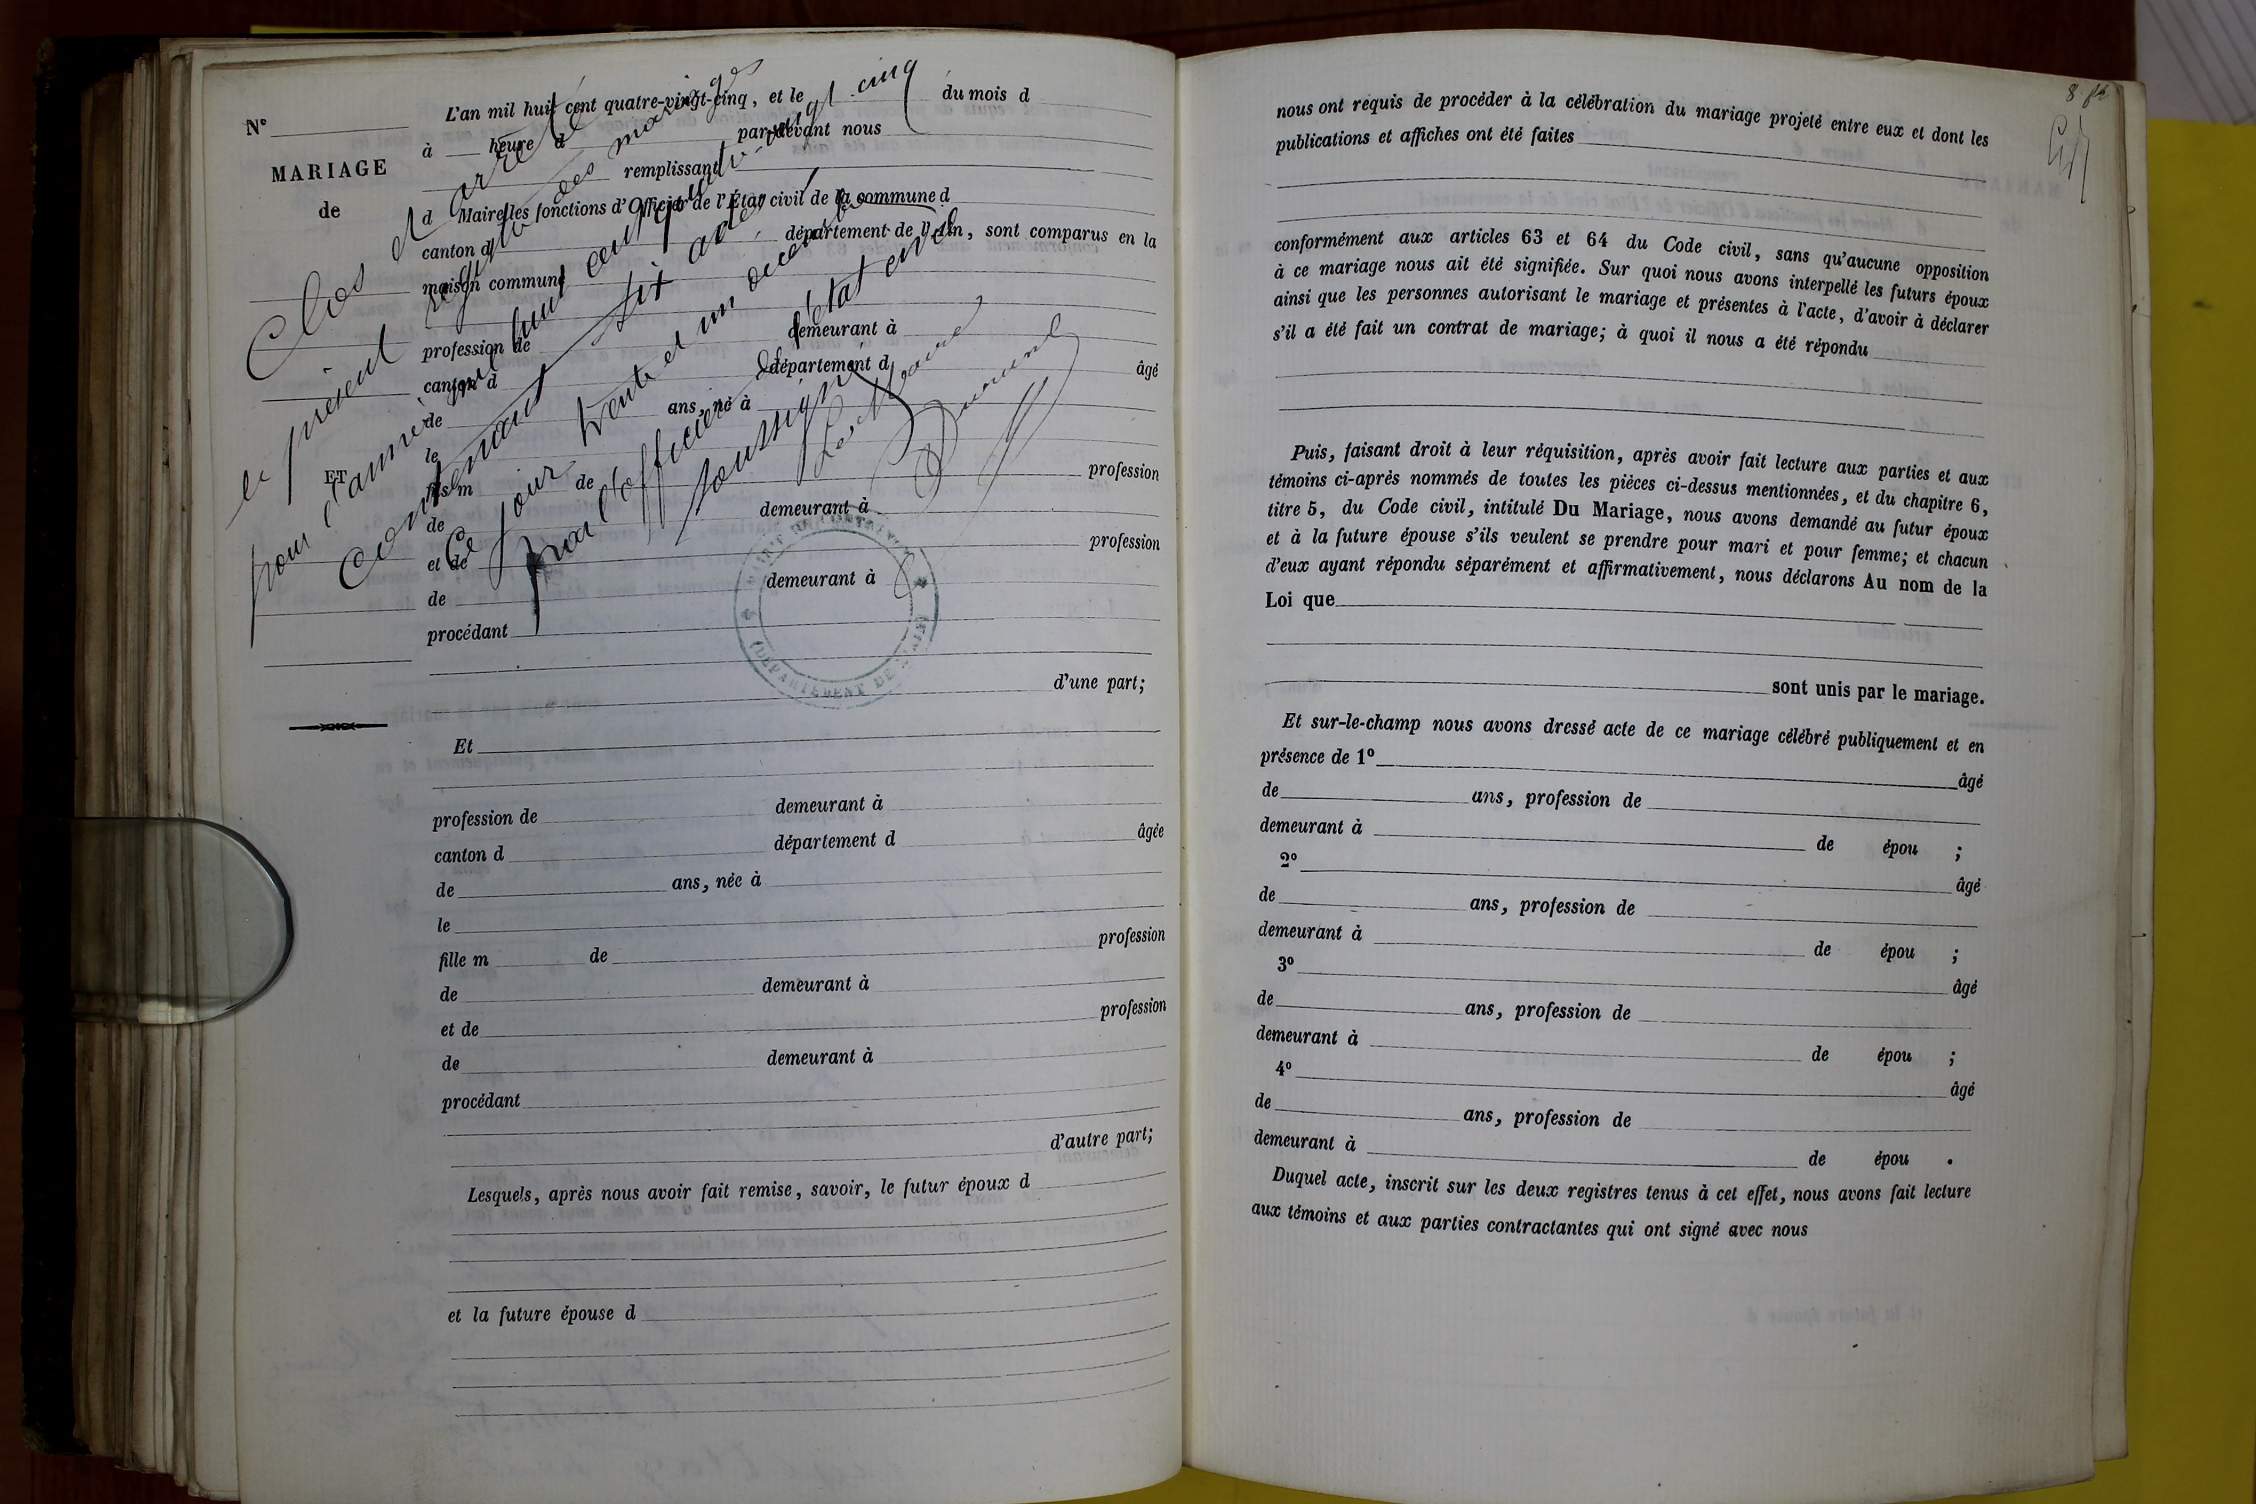 N°
MARIAGE
de
ET
L'an mil huit cent quatre-vingt-cinq, et le du mois d
à heure d par-devant nous
remplissant
d Maire les fonctions d'Officier de l'État civil de la commune d
canton d département de l'Ain, sont comparus en la
maison commune
profession de demeurant à
canton d département d âgé
de ans, né à
le
fils m de profession
de demeurant à
et de profession
de demeurant à
procédant
d'une part;
Et
profession de demeurant à
canton d département d âgée
de ans, née à
le
fille m de profession
de demeurant à
et de profession
de demeurant à
procédant
d'autre part;
Lesquels, après nous avoir fait remise, savoir, le futur époux d
et la future épouse d
Clos et arrêté
le présent registre des mariages
pour l'année mil huit cent quatre-vingt cinq
contenant six actes
Ce jour trente et un décembre
par l'officier de l'état civil
soussigné
Le Maire
DÉPARTEMENT DE
8 fts
nous ont requis de procéder à la célébration du mariage projeté entre eux et dont les
publications et affiches ont été faites
conformément aux articles 63 et 64 du Code civil, sans qu'aucune opposition
à ce mariage nous ait été signifiée. Sur quoi nous avons interpellé les futurs époux
ainsi que les personnes autorisant le mariage et présentes à l'acte, d'avoir à déclarer
s'il a été fait un contrat de mariage; à quoi il nous a été répondu
Puis, faisant droit à leur réquisition, après avoir fait lecture aux parties et aux
témoins ci-après nommés de toutes les pièces ci-dessus mentionnées, et du chapitre 6,
titre 5, du Code civil, intitulé Du Mariage, nous avons demandé au futur époux
et à la future épouse s'ils veulent se prendre pour mari et pour femme; et chacun
d'eux ayant répondu séparément et affirmativement, nous déclarons Au nom de la
Loi que
sont unis par le mariage.
Et sur-le-champ nous avons dressé acte de ce mariage célébré publiquement et en
présence de 1° âgé
de ans, profession de
demeurant à de épou ;
2° âgé
de ans, profession de
demeurant à de épou ;
3° âgé
de ans, profession de
demeurant à de épou ;
4° âgé
de ans, profession de
demeurant à de épou .
Duquel acte, inscrit sur les deux registres tenus à cet effet, nous avons fait lecture
aux témoins et aux parties contractantes qui ont signé avec nous